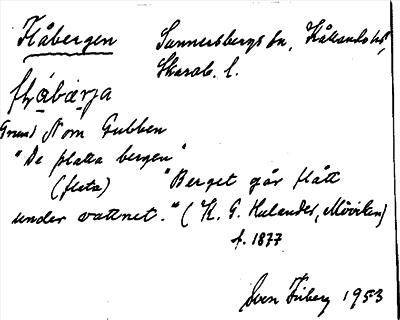 Flåbergen Sunnersbergs sn, Kållands hd,
Skarab. l.
flåbærja
Grund N om Gubben
"De platta bergen"
(flata) "Berget går flått
under vattnet." (K. G. Helander, Möviken)
f. 1877
Sven Friberg 1953